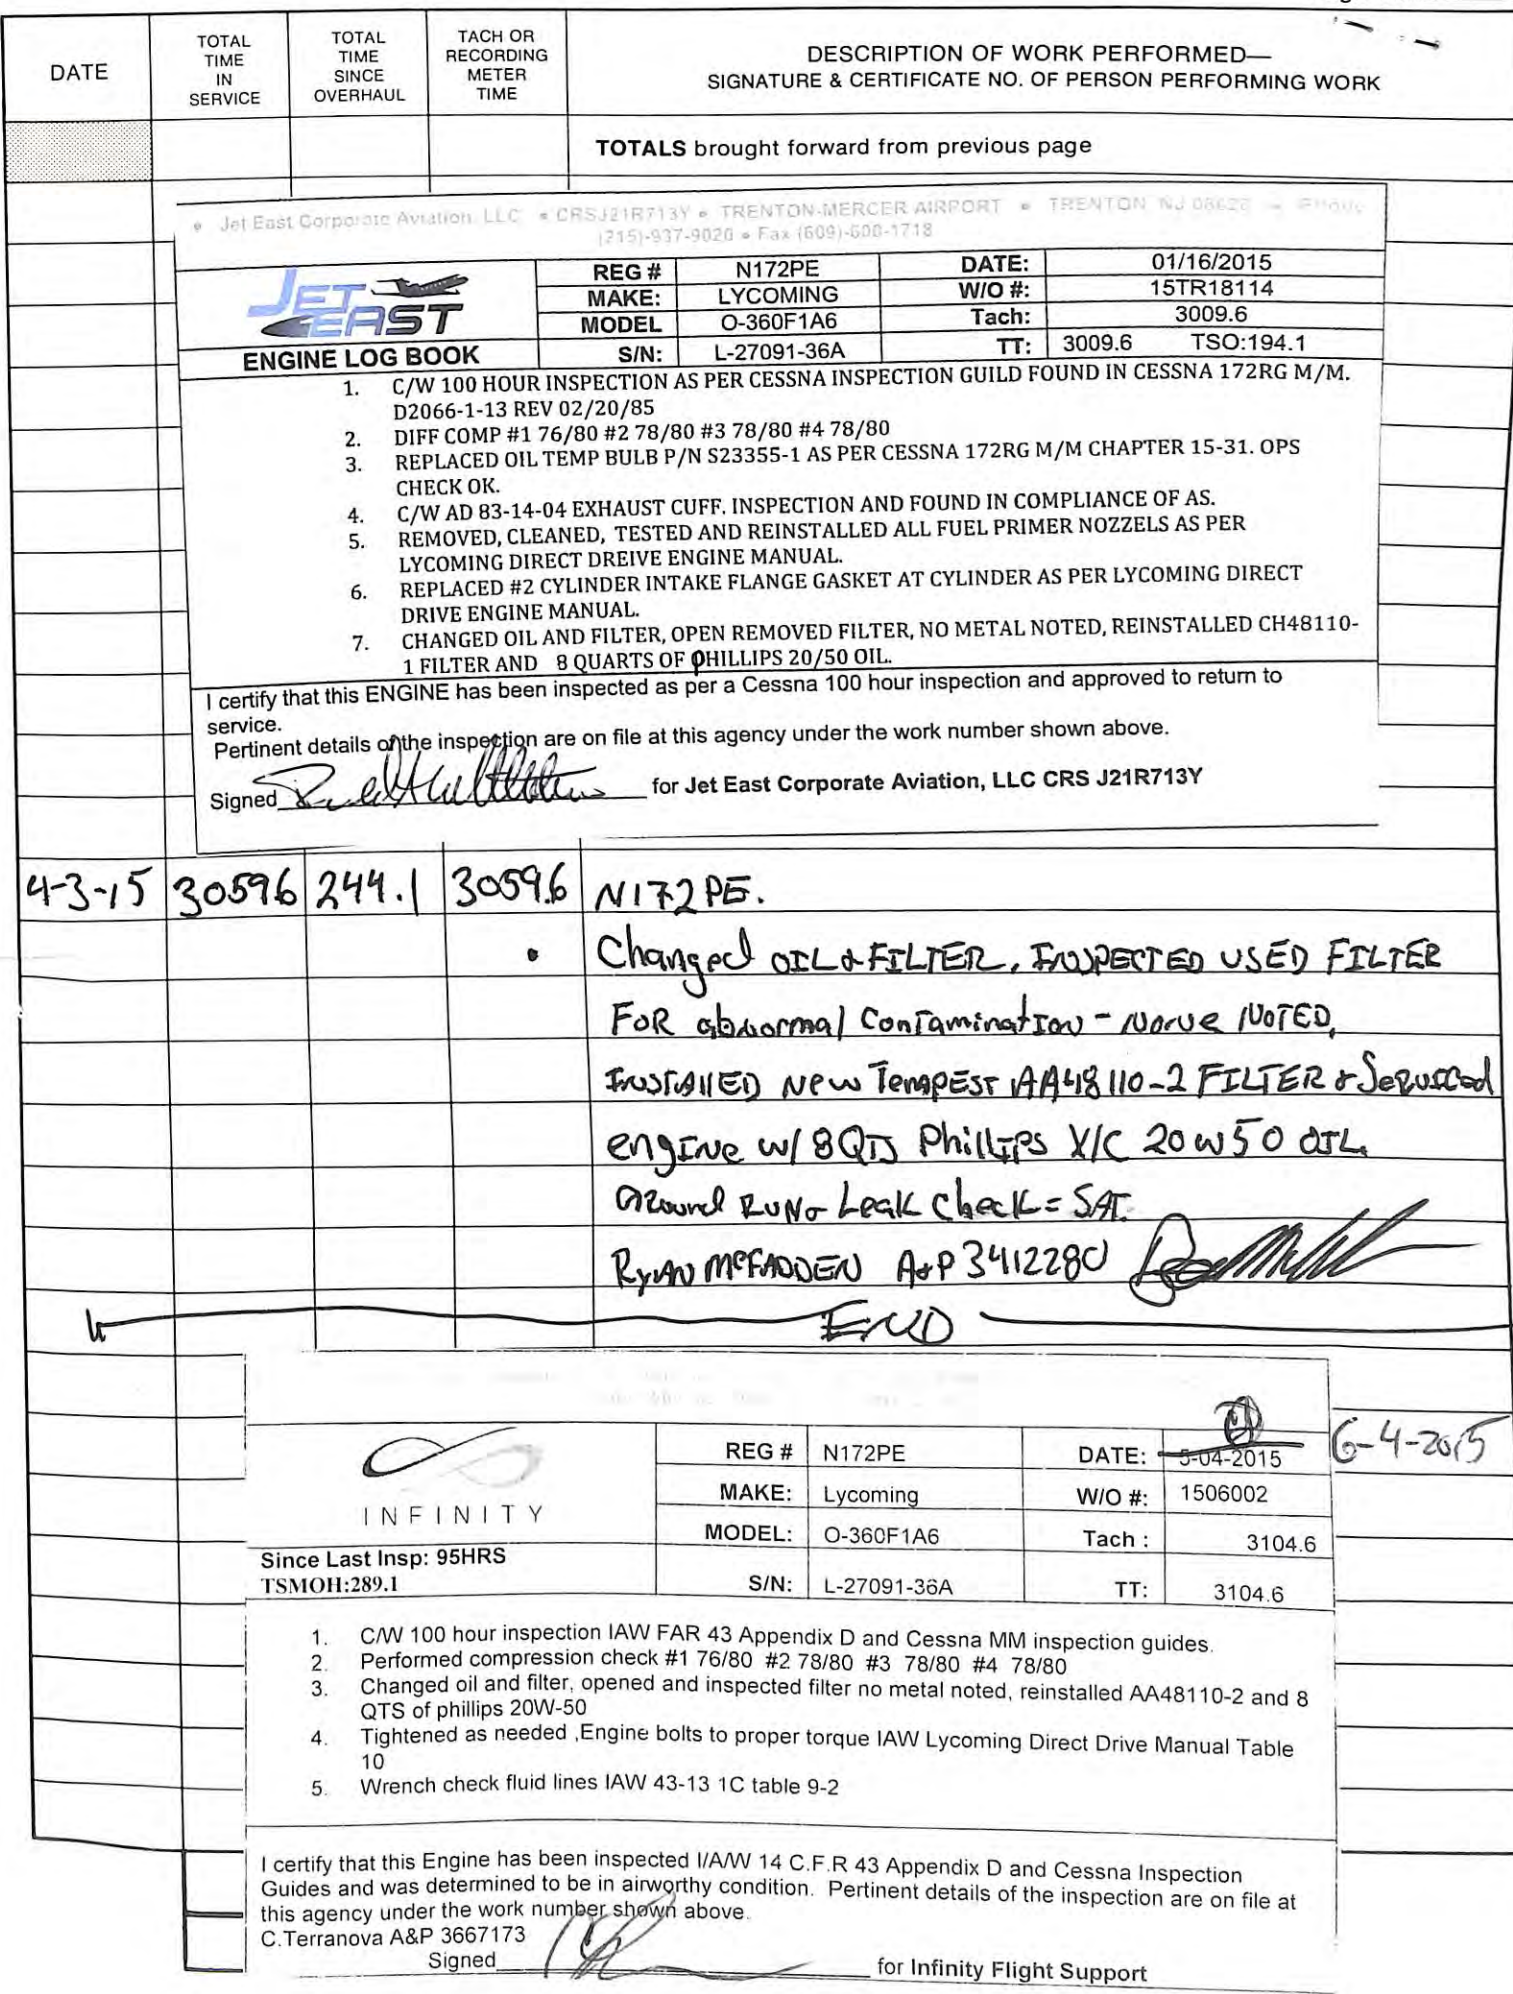 DATE
TOTAL TIME IN SERVICE
TOTAL TIME SINCE OVERHAUL
TACH OR RECORDING METER TIME
DESCRIPTION OF WORK PERFORMED—
SIGNATURE & CERTIFICATE NO. OF PERSON PERFORMING WORK
TOTALS brought forward from previous page
• Jet East Corporate Aviation, LLC • CRSJ21R713Y • TRENTON-MERCER AIRPORT • TRENTON NJ 08628 • Phone
(215)-937-9020 • Fax (609)-600-1718
JET EAST
REG # N172PE DATE: 01/16/2015
MAKE: LYCOMING W/O #: 15TR18114
MODEL O-360F1A6 Tach: 3009.6
ENGINE LOG BOOK S/N: L-27091-36A TT: 3009.6 TSO:194.1
1. C/W 100 HOUR INSPECTION AS PER CESSNA INSPECTION GUILD FOUND IN CESSNA 172RG M/M.
D2066-1-13 REV 02/20/85
2. DIFF COMP #1 76/80 #2 78/80 #3 78/80 #4 78/80
3. REPLACED OIL TEMP BULB P/N S23355-1 AS PER CESSNA 172RG M/M CHAPTER 15-31. OPS
CHECK OK.
4. C/W AD 83-14-04 EXHAUST CUFF. INSPECTION AND FOUND IN COMPLIANCE OF AS.
5. REMOVED, CLEANED, TESTED AND REINSTALLED ALL FUEL PRIMER NOZZELS AS PER
LYCOMING DIRECT DREIVE ENGINE MANUAL.
6. REPLACED #2 CYLINDER INTAKE FLANGE GASKET AT CYLINDER AS PER LYCOMING DIRECT
DRIVE ENGINE MANUAL.
7. CHANGED OIL AND FILTER, OPEN REMOVED FILTER, NO METAL NOTED, REINSTALLED CH48110-
1 FILTER AND 8 QUARTS OF PHILLIPS 20/50 OIL.
I certify that this ENGINE has been inspected as per a Cessna 100 hour inspection and approved to return to
service.
Pertinent details of the inspection are on file at this agency under the work number shown above.
Signed for Jet East Corporate Aviation, LLC CRS J21R713Y
4-3-15 3059.6 244.1 3059.6 N172PE.
Changed OIL & FILTER, INSPECTED USED FILTER
FOR abnormal Contamination - None NOTED,
INSTALLED New Tempest AA48110-2 FILTER & Serviced
engine w/ 8 QTS Phillips X/C 20W50 OIL
Ground Run & Leak check = SAT.
Ryan McFADDEN A&P 3412280
END
INFINITY
REG # N172PE DATE: 5-04-2015 6-4-2015
MAKE: Lycoming W/O #: 1506002
MODEL: O-360F1A6 Tach : 3104.6
Since Last Insp: 95HRS
TSMOH:289.1 S/N: L-27091-36A TT: 3104.6
1. C/W 100 hour inspection IAW FAR 43 Appendix D and Cessna MM inspection guides.
2. Performed compression check #1 76/80 #2 78/80 #3 78/80 #4 78/80
3. Changed oil and filter, opened and inspected filter no metal noted, reinstalled AA48110-2 and 8
QTS of phillips 20W-50
4. Tightened as needed ,Engine bolts to proper torque IAW Lycoming Direct Drive Manual Table
10
5. Wrench check fluid lines IAW 43-13 1C table 9-2
I certify that this Engine has been inspected I/A/W 14 C.F.R 43 Appendix D and Cessna Inspection
Guides and was determined to be in airworthy condition. Pertinent details of the inspection are on file at
this agency under the work number shown above.
C.Terranova A&P 3667173
Signed for Infinity Flight Support